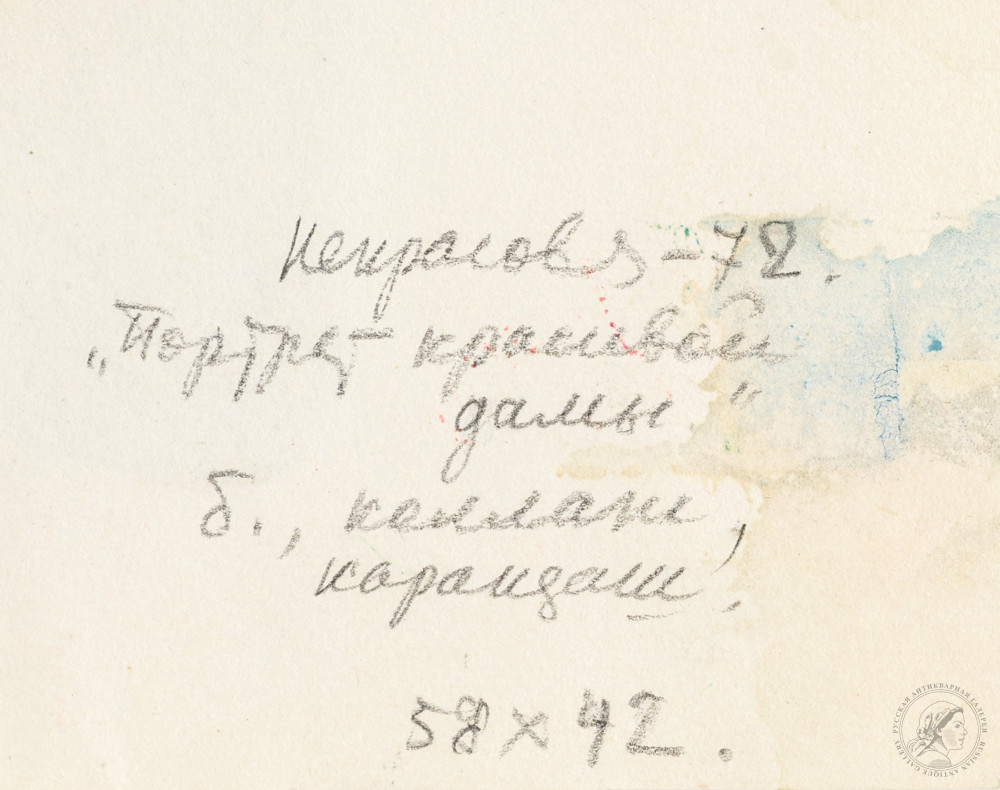 Некрасов В-72.
„Портрет красивой
дамы"
б., коллаж,
карандаш.
58×42.
РУССКАЯ АНТИКВАРНАЯ ГАЛЕРЕЯ
RUSSIAN ANTIQUE GALLERY